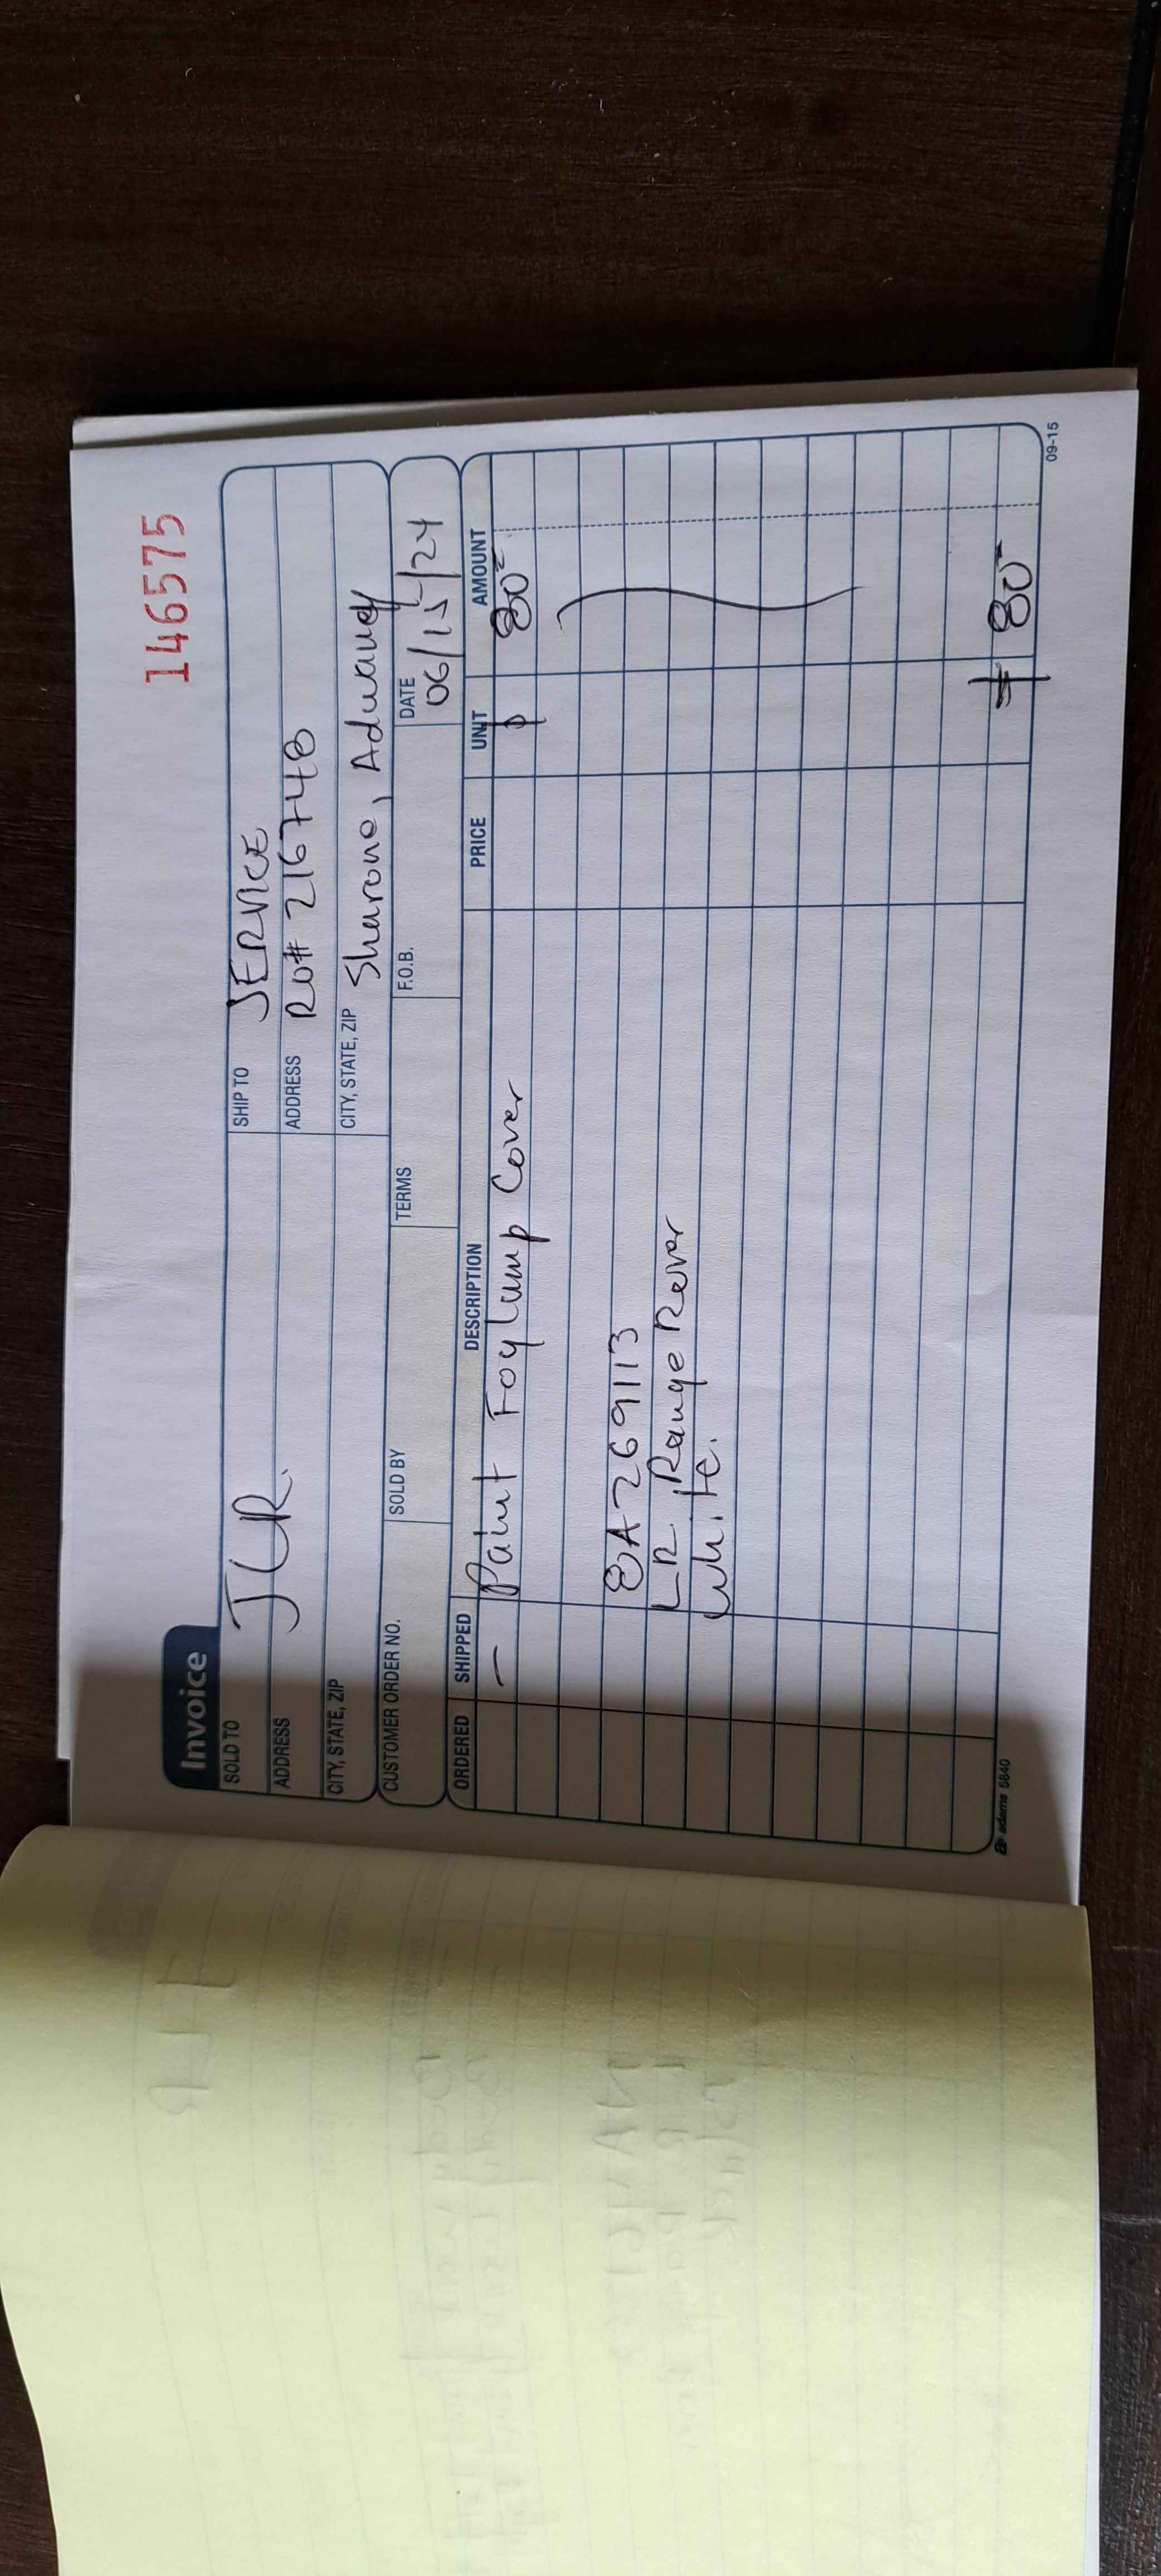 146575
Invoice
SOLD TO JLR.
SHIP TO SERVICE
ADDRESS
ADDRESS RO# 216748
CITY, STATE, ZIP
CITY, STATE, ZIP Sharone,
CUSTOMER ORDER NO. SOLD BY TERMS F.O.B. DATE 06/15/24
ORDERED SHIPPED DESCRIPTION PRICE UNIT AMOUNT
— Paint Foglamp Cover $ 80=
8A269113
LR, Range Rover
White.
$ 80-
adams 5840
09-15